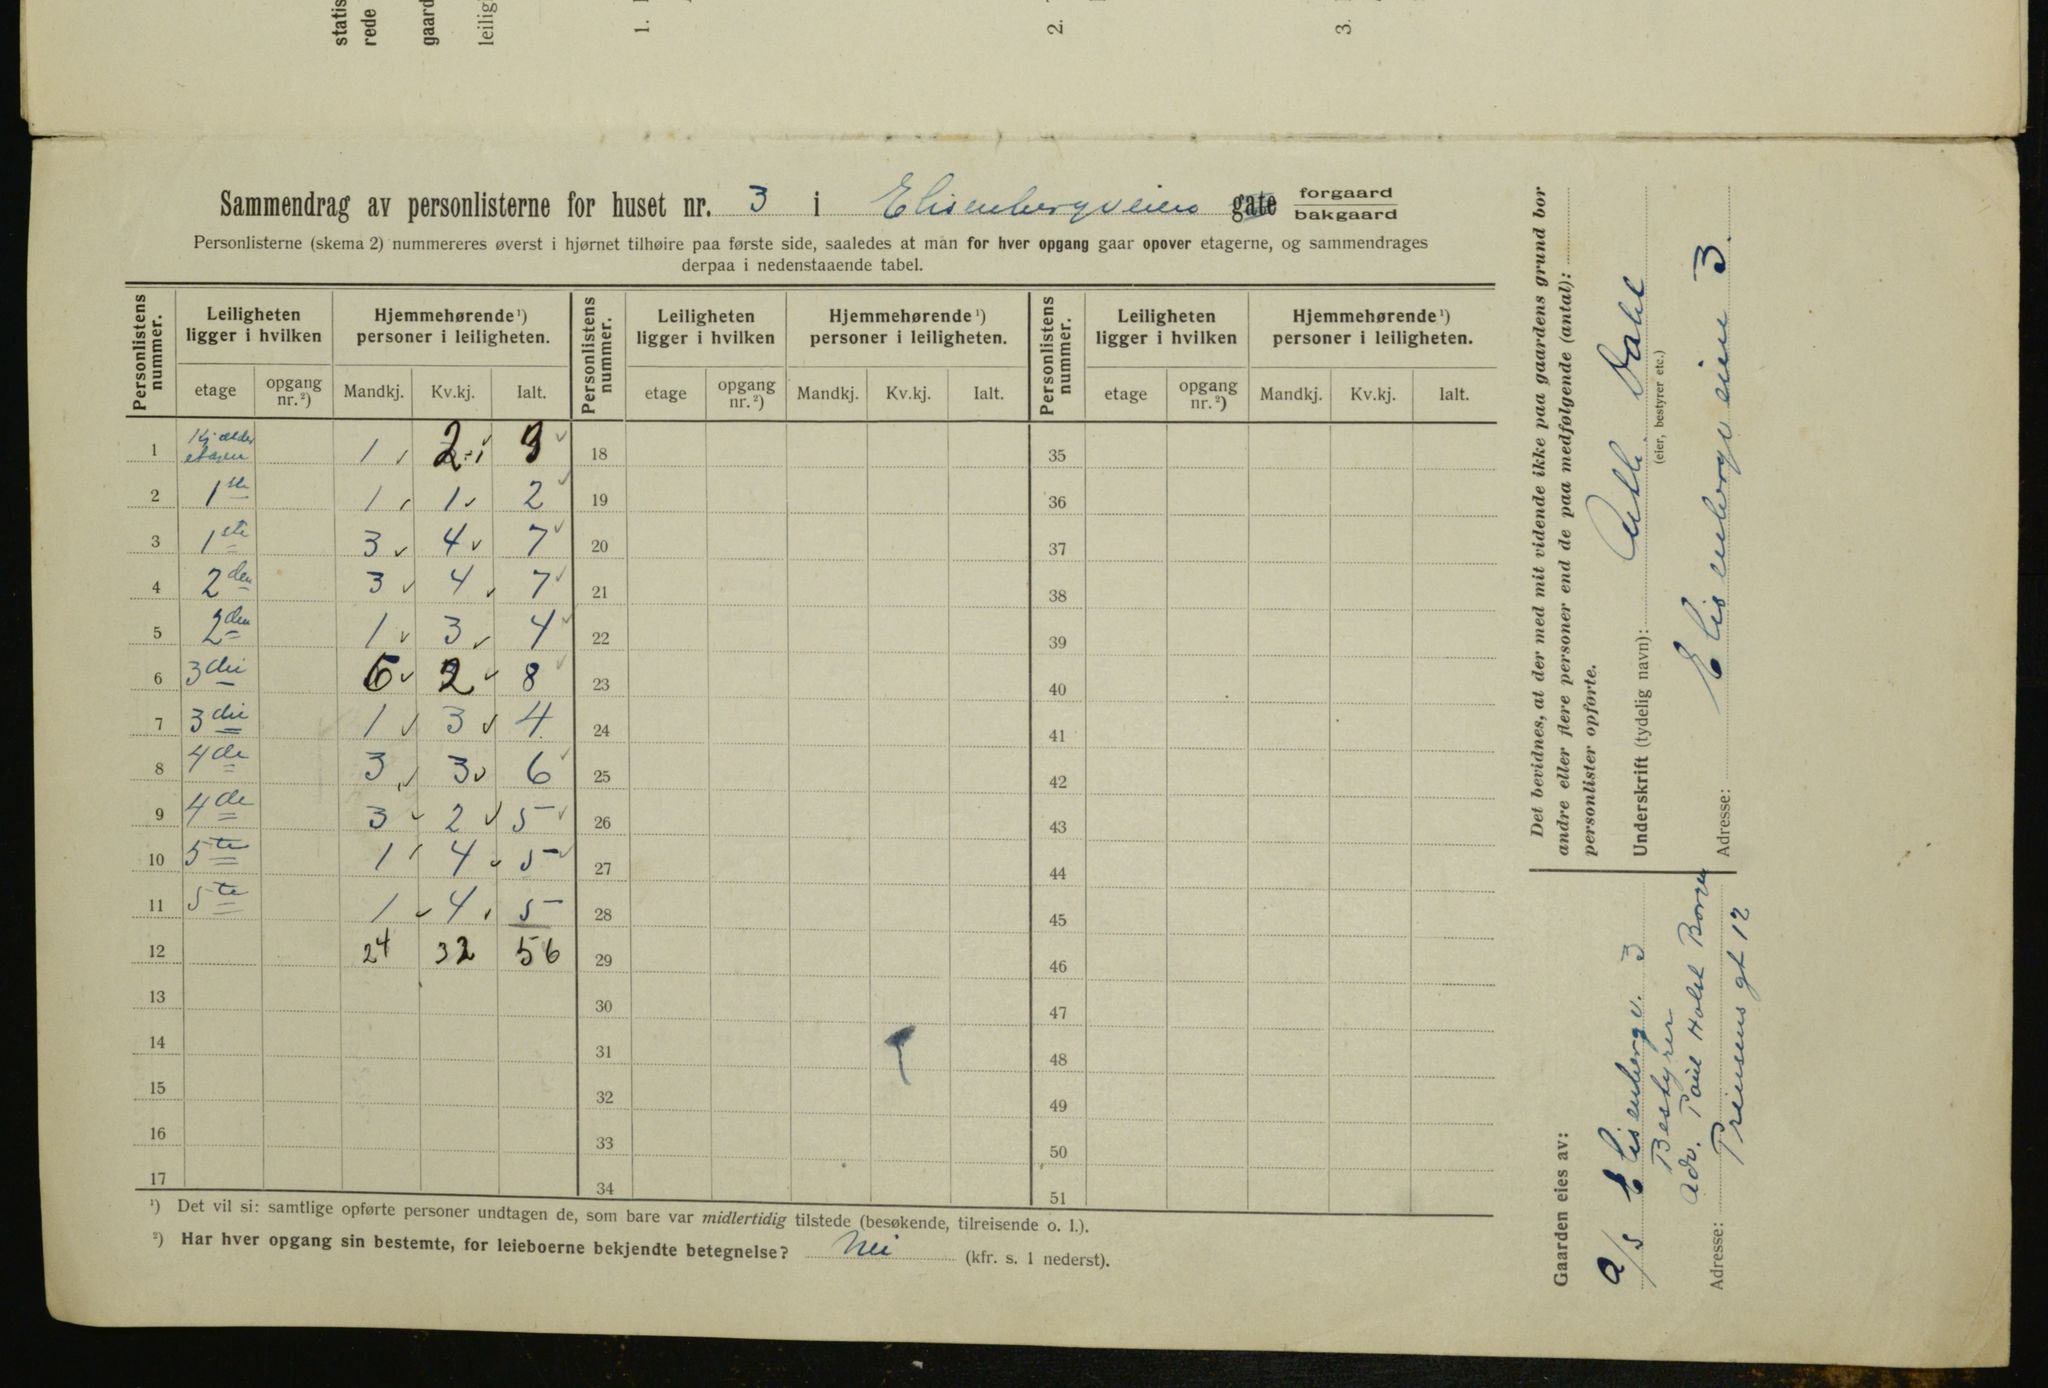 statis
rede
gaard
leilig
1.
2.
3.
Sammendrag av personlisterne for huset nr. 3 i Elisenbergveien gate forgaard
bakgaard
Personlisterne (skema 2) nummereres øverst i hjørnet tilhøire paa første side, saaledes at man for hver opgang gaar opover etagerne, og sammendrages
derpaa i nedenstaaende tabel.
Personlistens nummer. Leiligheten ligger i hvilken Hjemmehørende ¹) personer i leiligheten. Personlistens nummer. Leiligheten ligger i hvilken Hjemmehørende ¹) personer i leiligheten. Personlistens nummer. Leiligheten ligger i hvilken Hjemmehørende ¹) personer i leiligheten.
etage opgang nr.²) Mandkj. Kv.kj. Ialt. etage opgang nr.²) Mandkj. Kv.kj. Ialt. etage opgang nr.²) Mandkj. Kv.kj. Ialt.
1 Kjælder etagen 1 2 3 18 35
2 1ste 1 1 2 19 36
3 1ste 3 4 7 20 37
4 2den 3 4 7 21 38
5 2den 1 3 4 22 39
6 3die 6 2 8 23 40
7 3die 1 3 4 24 41
8 4de 3 3 6 25 42
9 4de 3 2 5 26 43
10 5te 1 4 5 27 44
11 5te 1 4 5 28 45
12 24 32 56 29 46
13 30 47
14 31 48
15 32 49
16 33 50
17 34 51
¹) Det vil si: samtlige opførte personer undtagen de, som bare var midlertidig tilstede (besøkende, tilreisende o. l.).
²) Har hver opgang sin bestemte, for leieboerne bekjendte betegnelse? Nei (kfr. s. 1 nederst).
Det bevidnes, at der med mit vidende ikke paa gaardens grund bor
andre eller flere personer end de paa medfølgende (antal):
personlister opførte.
Underskrift (tydelig navn): Dahl
(eier, bestyrer etc.)
Adresse: Elisenbergveien 3.
Gaarden eies av:
A/S Elisenbergv. 3
Bestyrer
Adv. Paul Holst
Adresse: Prinsens gt 12